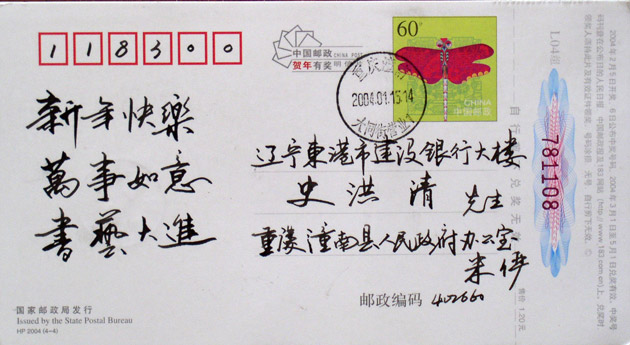 118300
中国邮政 CHINA POST
贺年有奖
60
CHINA
中国邮政
2004.01.15.14
新年快樂
萬事如意
書藝大進
辽宁東港市建设銀行大楼
史洪清 先生
重庆潼南县人民政府办公室
邮政编码 402660
售价：1.20元
国家邮政局发行
Issued by the State Postal Bureau
HP 2004 (4-4)
自行剪下兑奖无效
781108